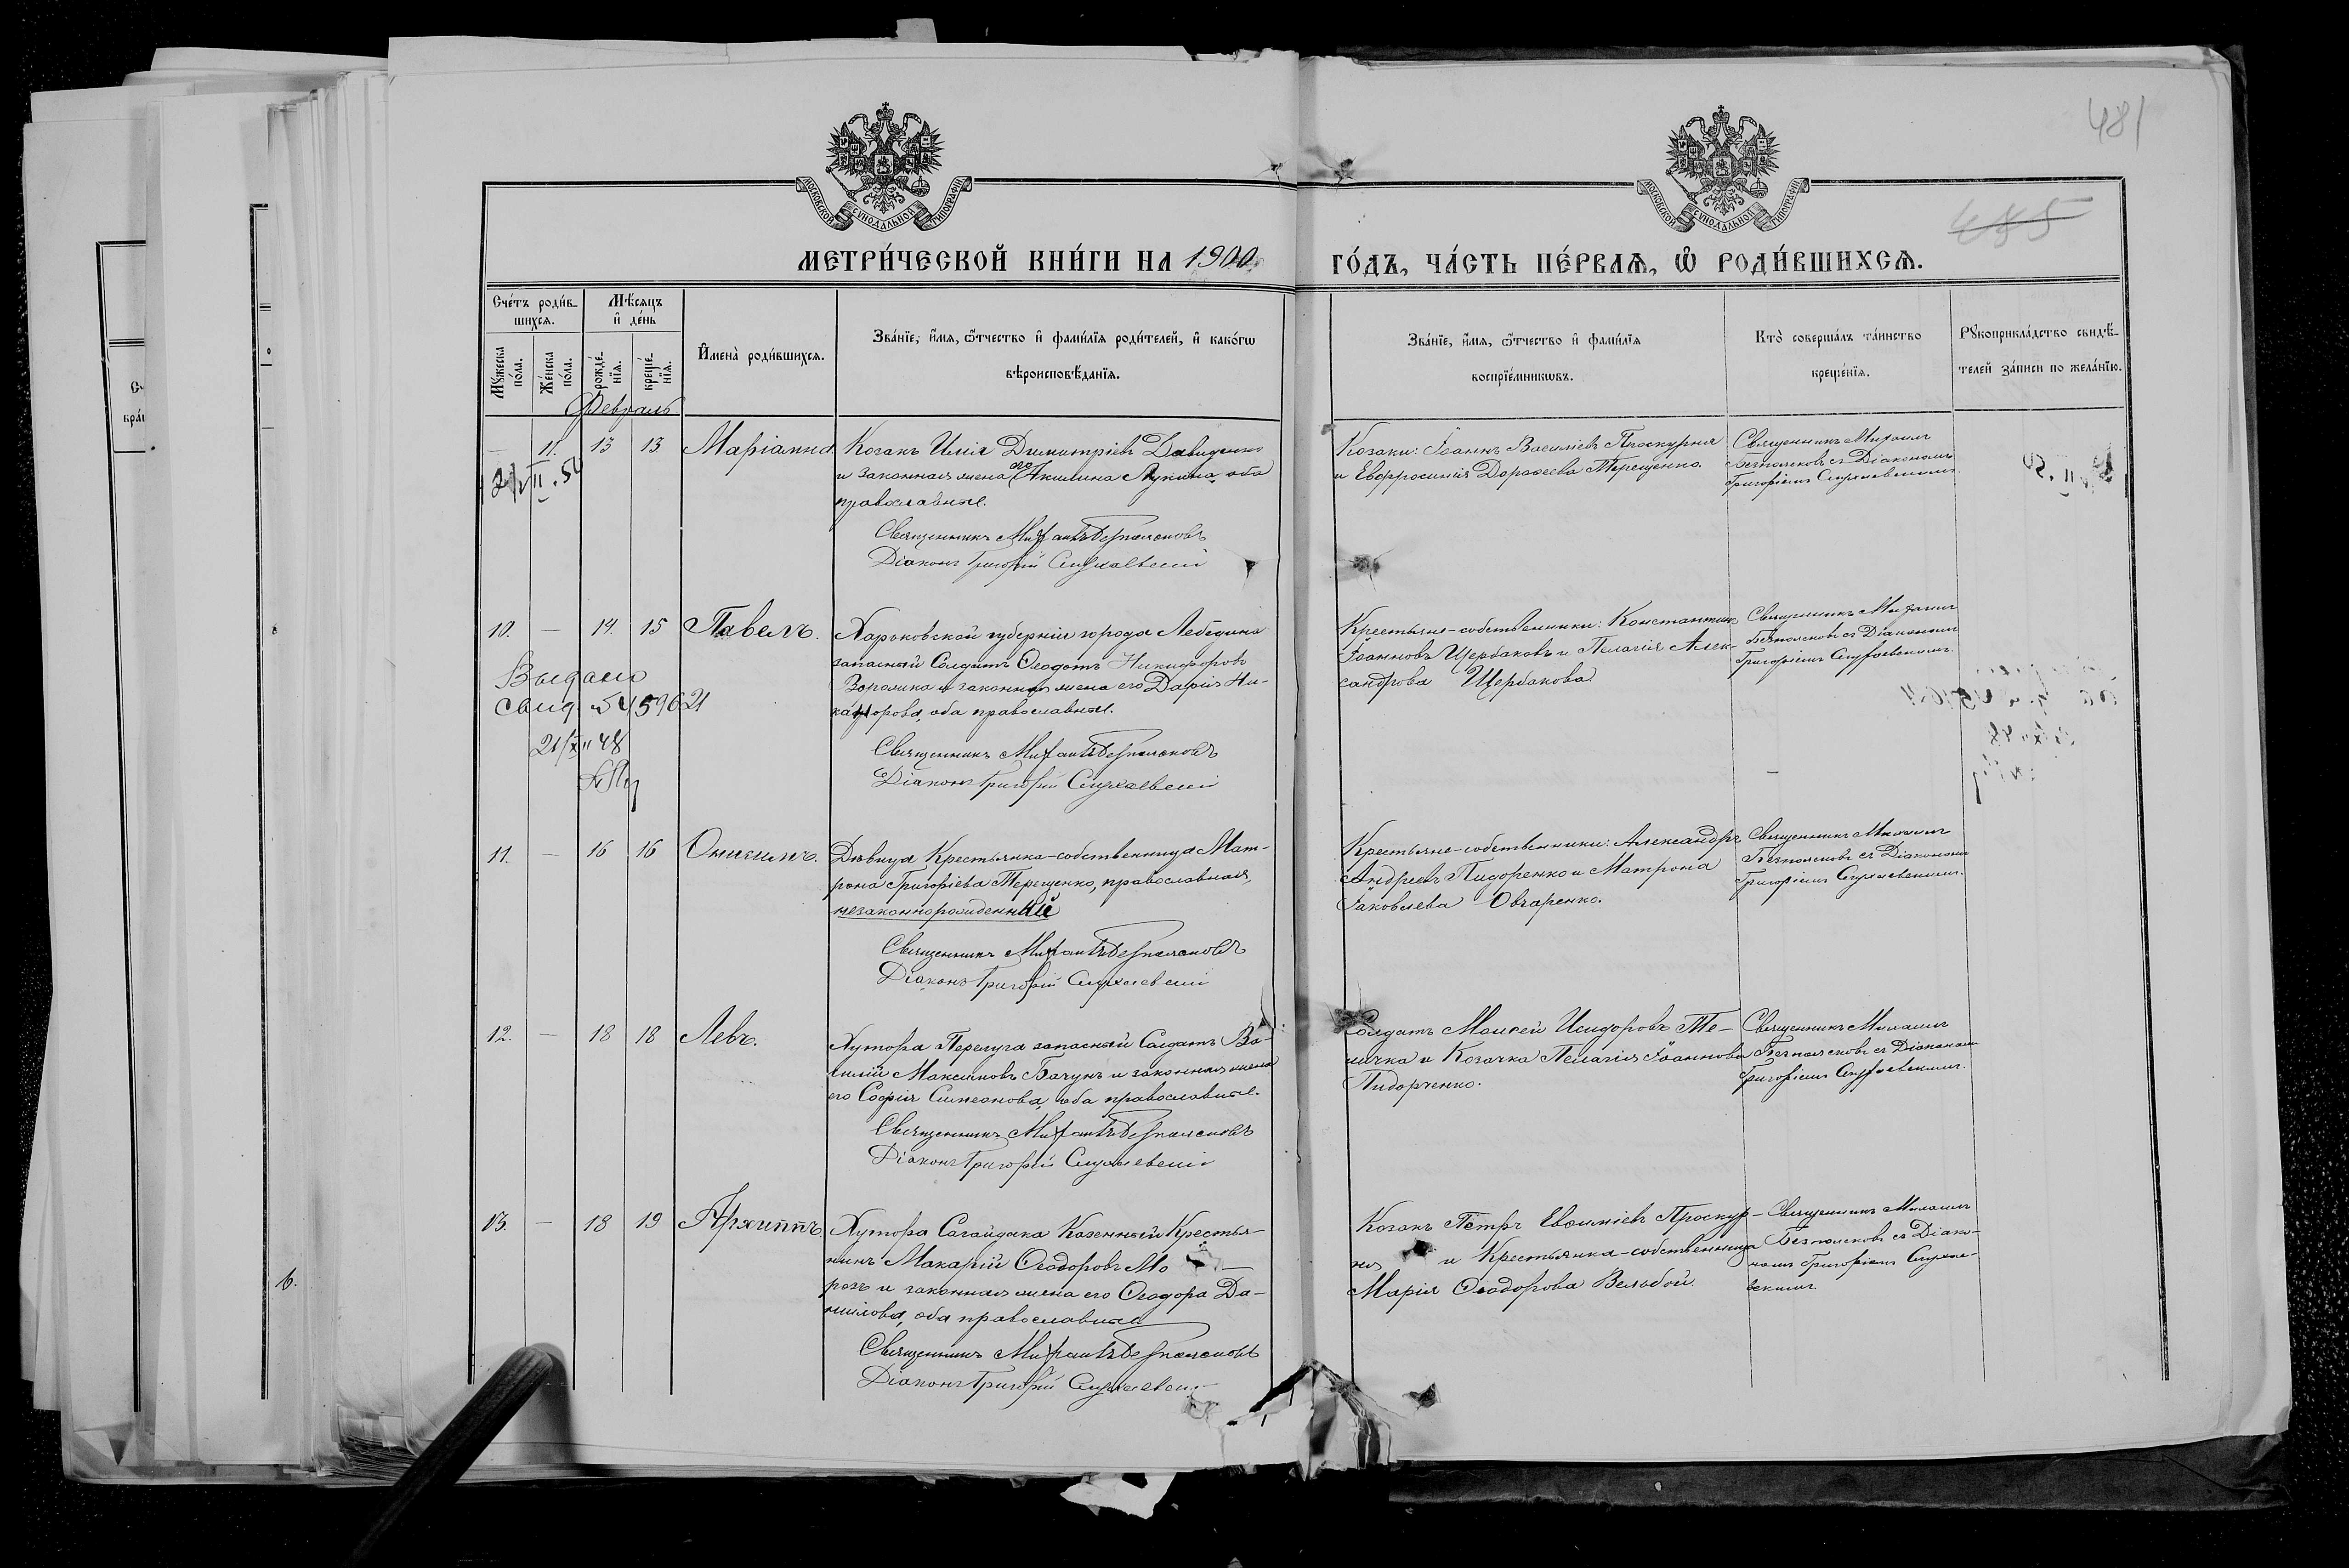 481
485
МОСКОВСКОЙ СѴНОДАЛЬНОЙ ТИПОГРАФІИ
МОСКОВСКОЙ СѴНОДАЛЬНОЙ ТИПОГРАФІИ
МЕТРИ́ЧЕСКОЙ КНИ́ГИ НА 1900 ГО́ДЪ, ЧА́СТЬ ПЕ́РВАѦ, Ѽ РОДИ́ВШИХСѦ.
Сче́тъ роди́в-
шихсѧ.
Мѣ́сѧцъ
и҆ де́нь
Мꙋ́жеска
по́ла.
Же́нска
по́ла.
рожде́-
нїѧ.
креще́-
нїѧ.
И҆мена̀ роди́вшихсѧ.
Зва́нїе, и҆́мѧ, ѻ҆́тчество и҆ фами́лїѧ роди́телей, и҆ како́гѡ
вѣроисповѣ́данїѧ.
Зва́нїе, и҆́мѧ, ѻ҆́тчество и҆ фами́лїѧ
воспрїе́мникѡвъ.
Кто̀ соверша́лъ та́инство
креще́нїѧ.
Рꙋкоприкла́дство свидѣ́-
телей за́писи по жела́нїю.
Февраль
— 11. 13 13 Маріанна
Козакъ Илія Димитріевъ Давиденко
и законная жена его Акилина Лукина, оба
православные.
Священникъ Михаилъ Безпалековъ
Діаконъ Григорій Слухаевскій
Козаки: Іоаннъ Василіевъ Проскурня
и Евфросинія Дорофеева Терещенко.
Священникъ Михаилъ
Безпалековъ съ Діакономъ
Григоріемъ Слухаевскимъ
10. — 14. 15 Павелъ.
Выдано
свид. 54 59621
21/XII 48
Харьковской губерніи города Лебедина
запасный Солдатъ Ѳеодотъ Никифоровъ
и законная жена его Дарія Ни-
канорова, оба православные.
Священникъ Михаилъ Безпалековъ
Діаконъ Григорій Слухаевскій
Крестьяне-собственники: Константинъ
Іоанновъ Щербаковъ и Пелагія Алек-
сандрова Щербакова.
Священникъ Михаилъ
Безпалековъ съ Діакономъ
Григоріемъ Слухаевскимъ.
11. — 16 16 Онисимъ.
Дѣвица Крестьянка-собственница Мат-
рона Григоріева Терещенко, православная,
незаконнорожденный
Священникъ Михаилъ Безпалековъ
Діаконъ Григорій Слухаевскій
Крестьяне-собственники: Александръ
Андреевъ Пидоренко и Матрона
Іаковлева Овчаренко.
Священникъ Михаилъ
Безпалековъ съ Діакономъ
Григоріемъ Слухаевскимъ.
12. — 18 18 Левъ.
Хутора Перелуга запасный Солдатъ Ва-
силій Максимовъ Бачунъ и законная жена
его Софія Симеонова, оба православные.
Священникъ Михаилъ Безпалековъ
Діаконъ Григорій Слухаевскій
Солдатъ Моисей Исидоровъ Те-
личка и Козачка Пелагія Іоаннова
Пидорченко.
Священникъ Михаилъ
Безпалековъ съ Діакономъ
Григоріемъ Слухаевскимъ.
13. — 18 19 Архиппъ.
Хутора Сагайдака Казенный Крестья-
нинъ Макарій Ѳеодоровъ Мо-
розъ и законная жена его Ѳеодора Да-
нилова, оба православные
Священникъ Михаилъ Безпалековъ
Діаконъ Григорій Слухаевскій
Козакъ Петръ Евѳиміевъ Проскур-
ня и Крестьянка-собственница
Марія Ѳеодорова Вельбой
Священникъ Михаилъ
Безпалековъ съ Діако-
номъ Григоріемъ Слухае-
вскимъ.